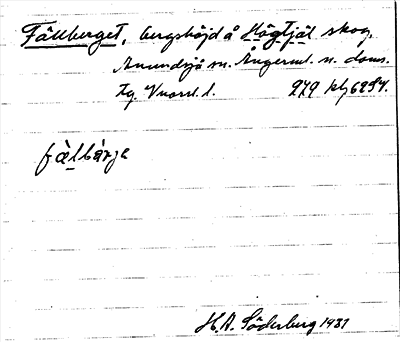 Fällberget, bergshöjd å Högtjäl skog,
Anundsjö sn. Ångerml. n. doms.
tg Vnorrl. l. 279 klj 6254.
fàlbárja
H.A. Söderberg 1931